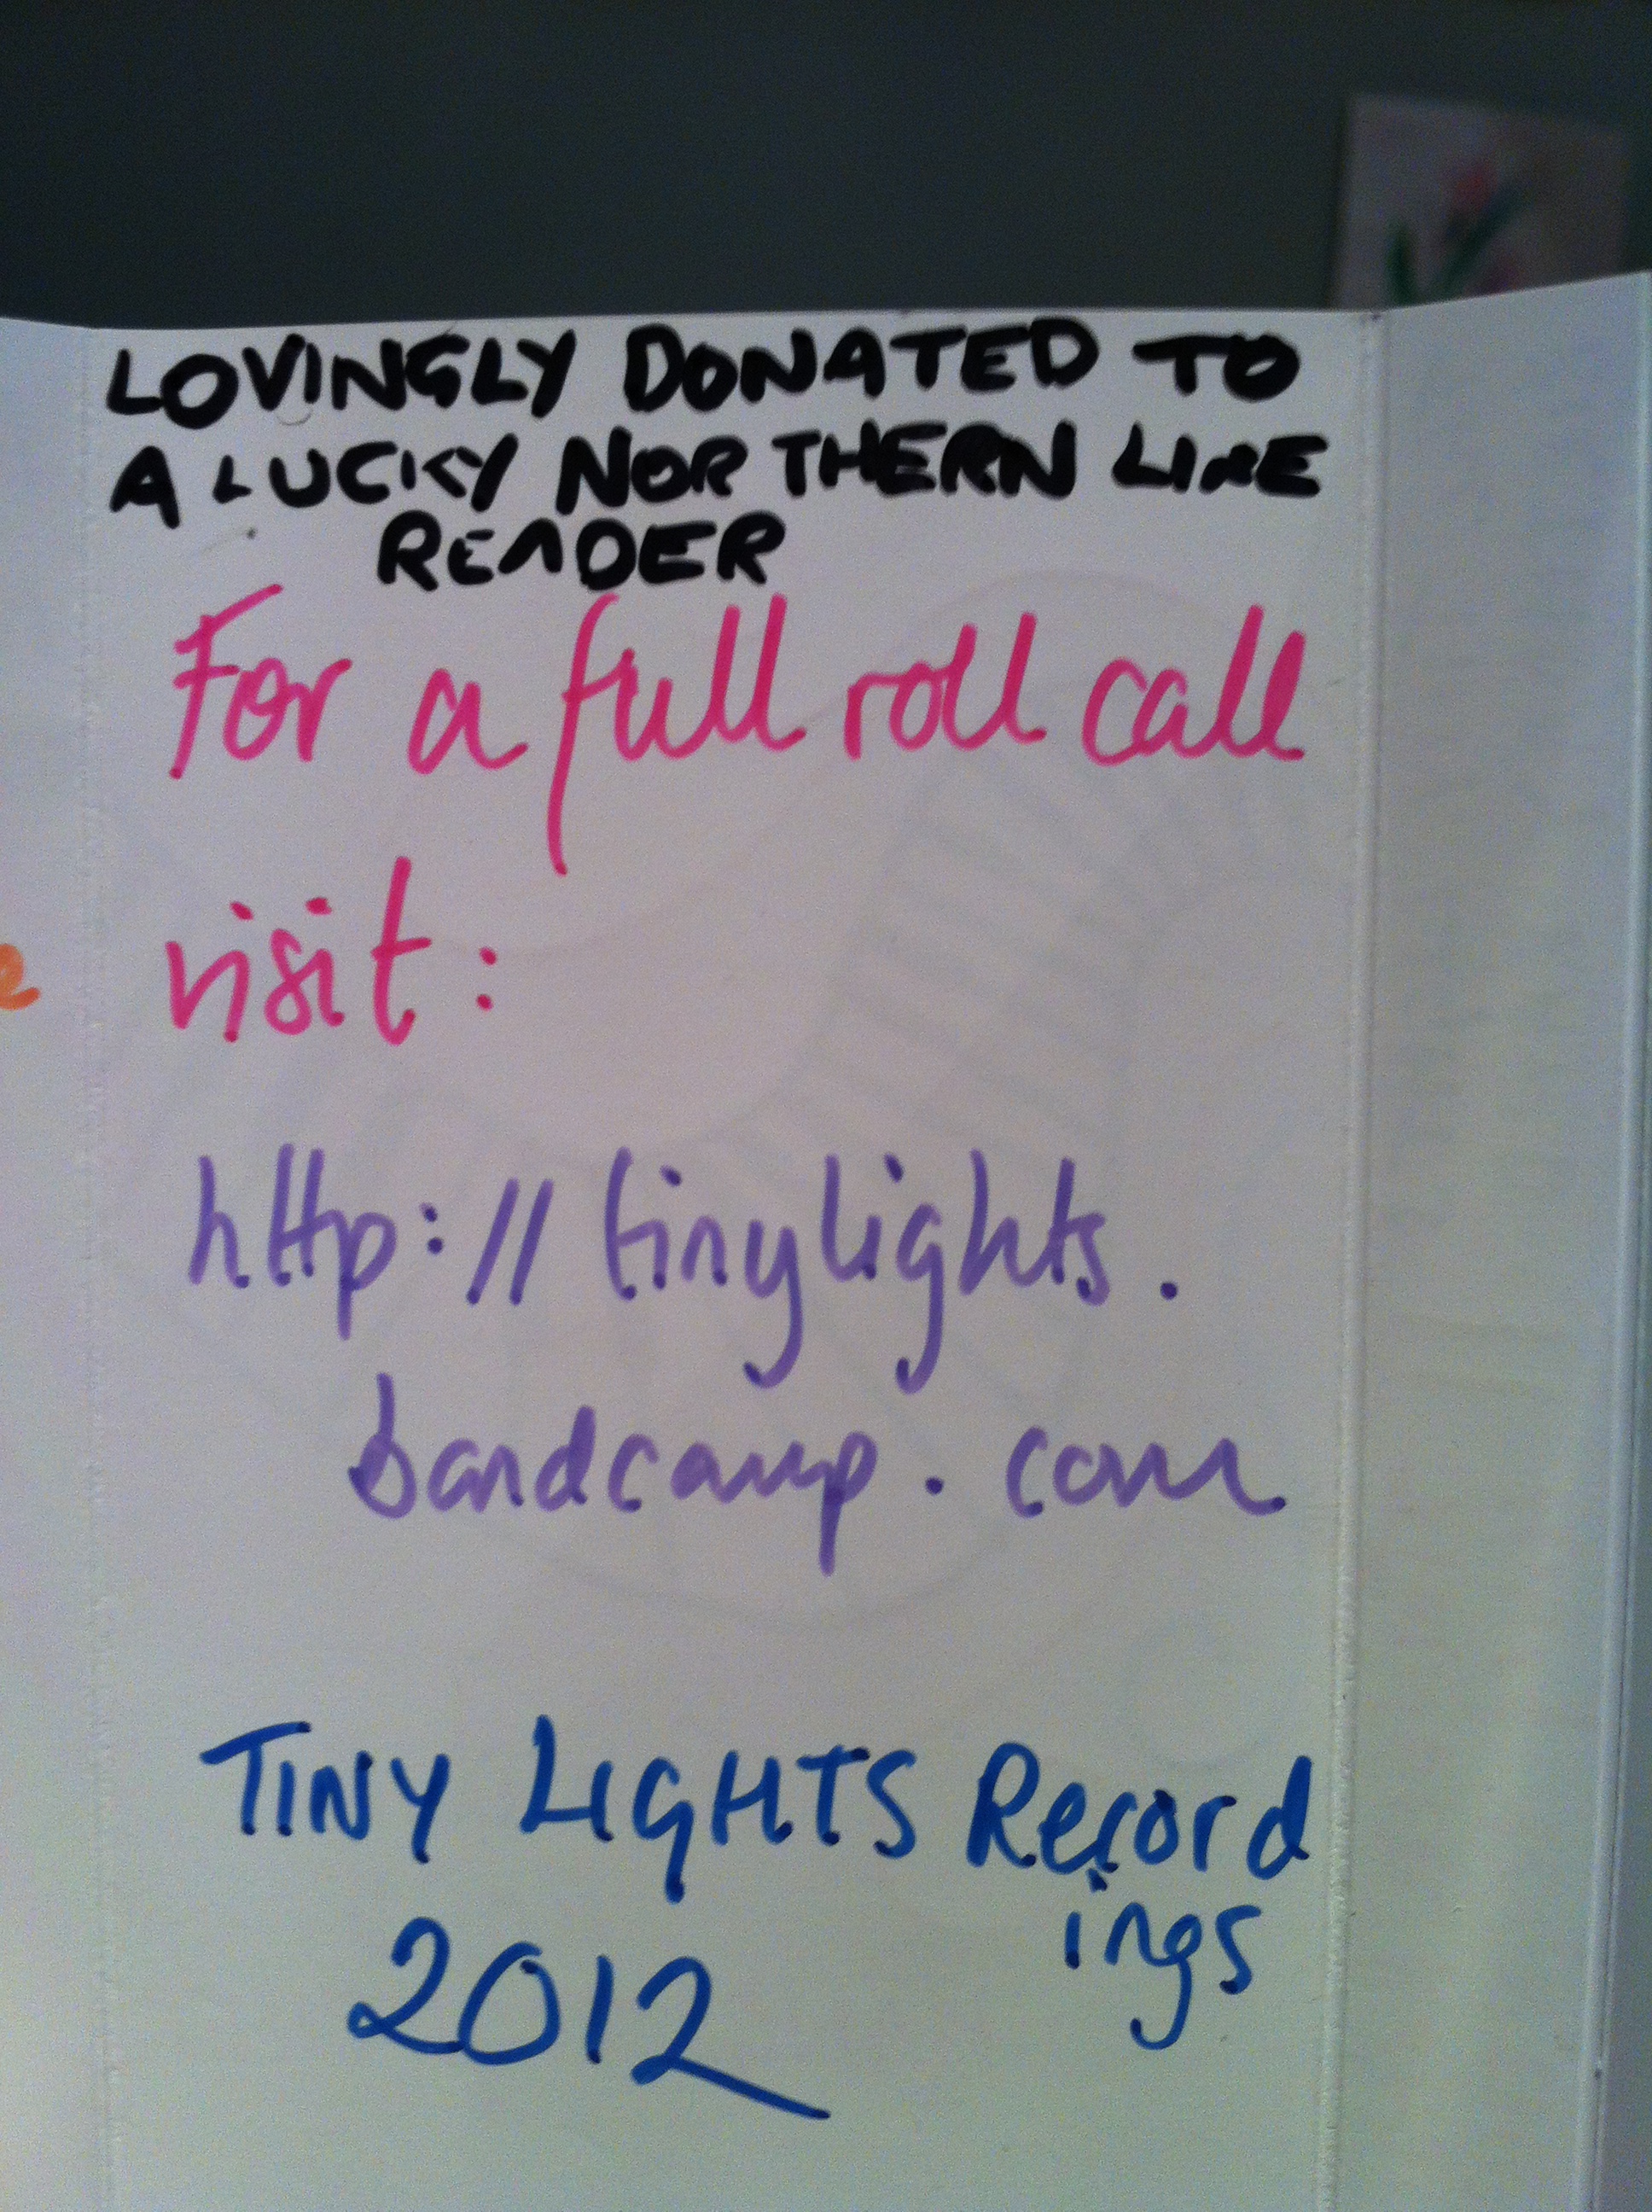 LOVINGLY DONATED TO
A LUCKY NORTHERN LINE
READER
For a full roll call
visit:
http://tinylights.
bandcamp.com
TINY LIGHTS Record
ings
2012